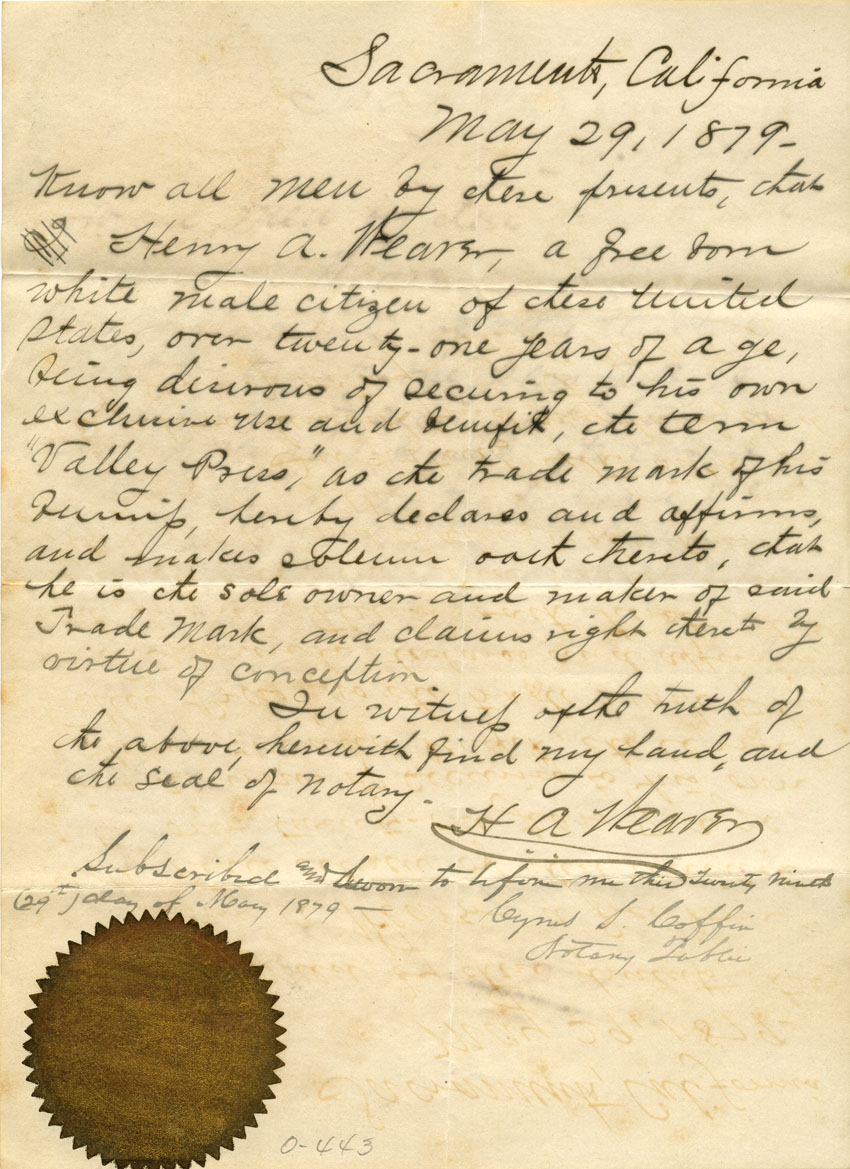 Sacramento, California
May 29, 1879-
Know all men by these presents, that
Henry A. Weaver, a free born
white male citizen of these United
States, over twenty-one years of age,
being desirous of securing to his own
exclusive use and benefit, the term
"Valley Press," as the trade mark of his
business, hereby declares and affirms,
and makes solemn oath thereto, that
he is the sole owner and maker of said
Trade Mark, and claims right thereto by
virtue of conception
In witness of the truth of
the above, herewith find my hand, and
the seal of Notary.
H A Weaver
Subscribed and sworn to before me this twenty ninth
(29th) day of May 1879 -
Cyrus S. Coffin
Notary Public
0-443